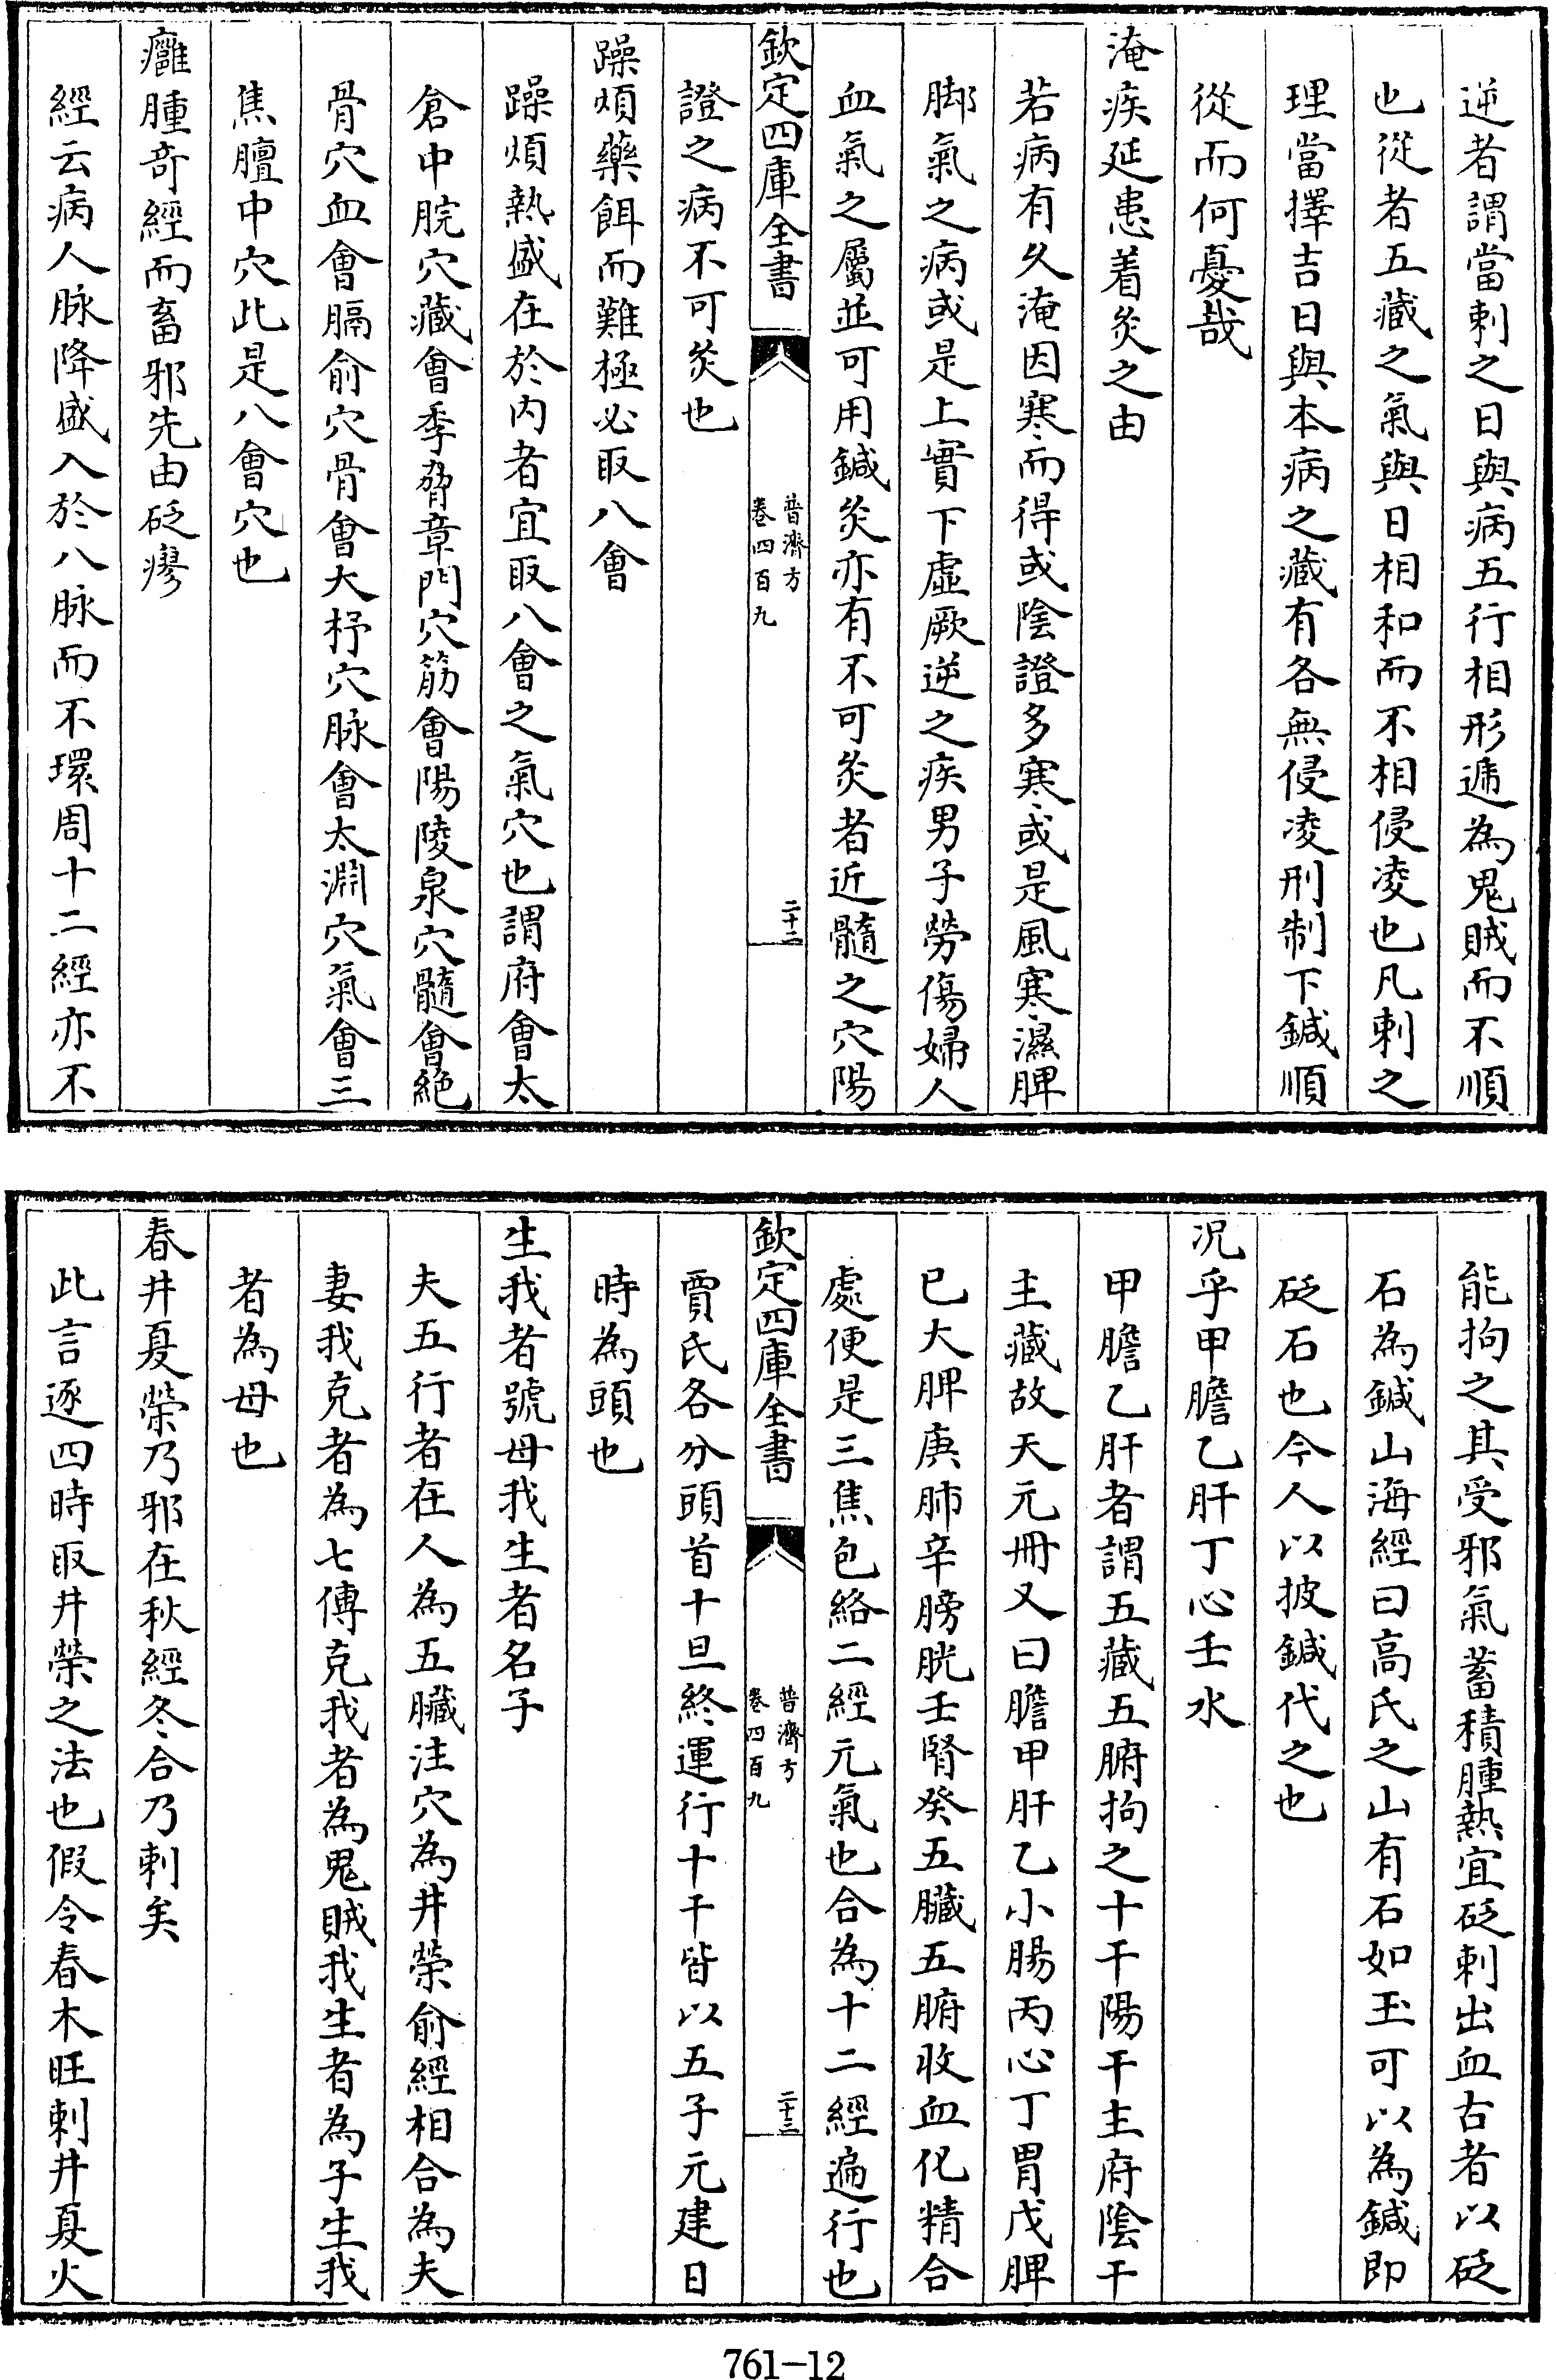 逆者謂當刺之日與病五行相形遞為鬼賊而不順
也從者五藏之氣與日相和而不相侵凌也凡刺之
理當擇吉日與本病之藏有各無侵凌刑制下鍼順
從而何憂哉
淹疾延患着灸之由
若病有久淹因寒而得或陰證多寒或是風寒濕脾
脚氣之病或是上實下虛厥逆之疾男子勞傷婦人
血氣之屬並可用鍼灸亦有不可灸者近髓之穴陽
欽定四庫全書
普濟方
卷四百九
二十二
證之病不可灸也
躁煩藥餌而難極必取八會
躁煩熱盛在於内者宜取八會之氣穴也謂府會太
倉中脘穴藏會季脅章門穴筋會陽陵泉穴髓會絶
骨穴血會膈俞穴骨會大杼穴脉會太淵穴氣會三
焦膻中穴此是八會穴也
癰腫奇經而畜邪先由砭瘳
經云病人脉降盛入於八脉而不環周十二經亦不
能拘之其受邪氣蓄積腫熱宜砭刺出血古者以砭
石為鍼山海經曰高氏之山有石如玉可以為鍼即
砭石也今人以披鍼代之也
况乎甲膽乙肝丁心壬水
甲膽乙肝者謂五藏五腑拘之十干陽干主府陰干
主藏故天元冊又曰膽甲肝乙小腸丙心丁胃戊脾
已大脾庚肺辛膀胱壬腎癸五臟五腑收血化精合
處便是三焦包絡二經元氣也合為十二經遍行也
欽定四庫全書
普濟方
卷四百九
二十三
賈氏各分頭首十旦終運行十干皆以五子元建日
時為頭也
生我者號母我生者名子
夫五行者在人為五臟注穴為井滎俞經相合為夫
妻我克者為七傳克我者為鬼賊我生者為子生我
者為母也
春井夏滎乃邪在秋經冬合乃刺矣
此言逐四時取井滎之法也假令春木旺刺井夏火
761-12